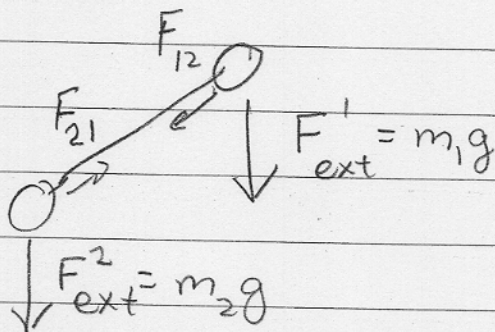 F₁₂
F₂₁
F¹ₑₓₜ = m₁g
F²ₑₓₜ = m₂g